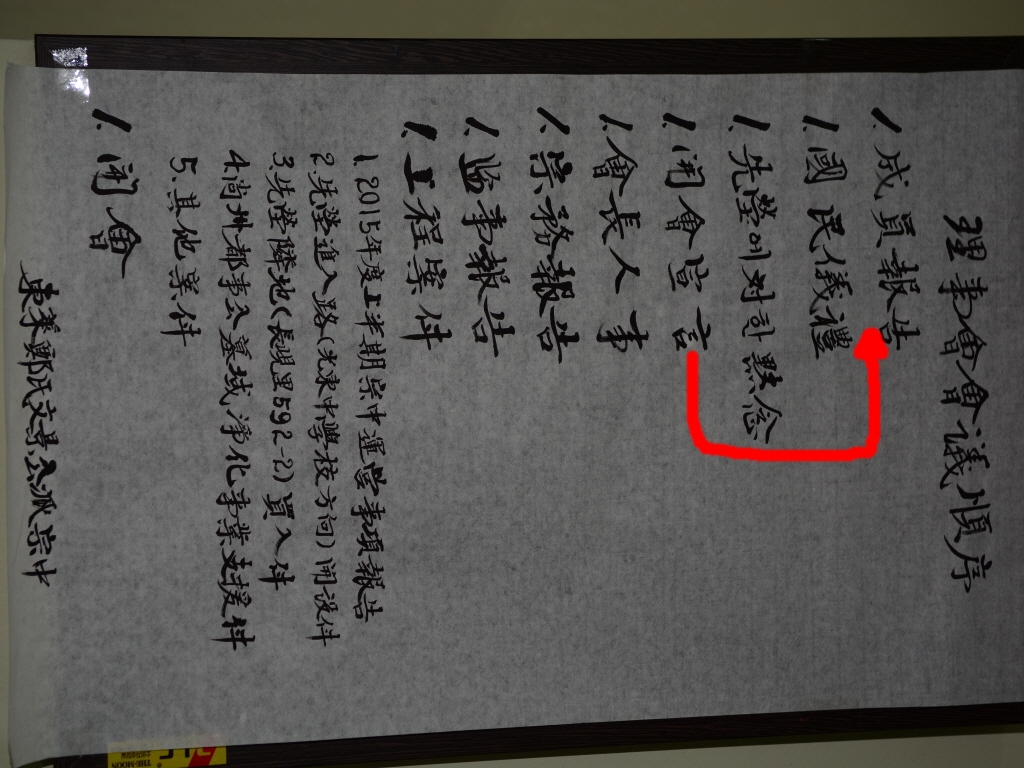 理事會會議順序
1. 成員報告
1. 國民儀禮
1. 先塋에 対한 黙念
1. 開會宣言
1. 會長人事
1. 宗務報告
1. 监事報告
1. 上程案件
1. 2015年度上半期宗中運營事項報告
2. 先塋進入路(光東中學校方向)開設件
3. 先塋隣地(長峴里592-2)買入件
4. 尙州都事公墓域淨化事業支援件
5. 其他案件
1. 閉會
東萊鄭氏文景公派宗中
THE-MOON